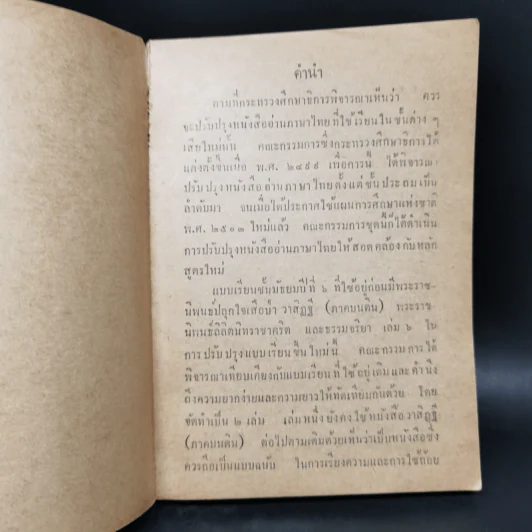 คำนำ
ตามที่กระทรวงศึกษาธิการพิจารณาเห็นว่า ควร
จะปรับปรุงหนังสืออ่านภาษาไทยที่ใช้เรียนในชั้นต่าง ๆ
เสียใหม่นั้น คณะกรรมการซึ่งกระทรวงศึกษาธิการได้
แต่งตั้งขึ้นเมื่อ พ.ศ. ๒๔๙๙ เพื่อการนี้ ได้พิจารณา
ปรับปรุงหนังสืออ่านภาษาไทยตั้งแต่ชั้นประถมเป็น
ลำดับมา จนเมื่อได้ประกาศใช้แผนการศึกษาแห่งชาติ
พ.ศ. ๒๕๐๓ ใหม่แล้ว คณะกรรมการชุดนี้ก็ได้ดำเนิน
การปรับปรุงหนังสืออ่านภาษาไทยให้สอดคล้องกับหลัก
สูตรใหม่
แบบเรียนชั้นมัธยมปีที่ ๖ ที่ใช้อยู่ก่อนมีพระราช-
นิพนธ์ปลุกใจเสือป่า วาสิฏฐี (ภาคบนดิน) พระราช-
นิพนธ์ลิลิตนิทราชาคริต และธรรมจริยา เล่ม ๖ ใน
การปรับปรุงแบบเรียนชั้นใหม่นี้ คณะกรรมการได้
พิจารณาเทียบเคียงกับแบบเรียนที่ใช้อยู่เดิมและคำนึง
ถึงความยากง่ายและความยาวให้ทัดเทียมกันด้วย โดย
จัดทำเป็น ๒ เล่ม เล่มหนึ่งยังคงใช้หนังสือวาสิฏฐี
(ภาคบนดิน) ต่อไปตามเดิมด้วยเห็นว่าเป็นหนังสือซึ่ง
ควรถือเป็นแบบฉบับ ในการเรียงความและการใช้ถ้อย